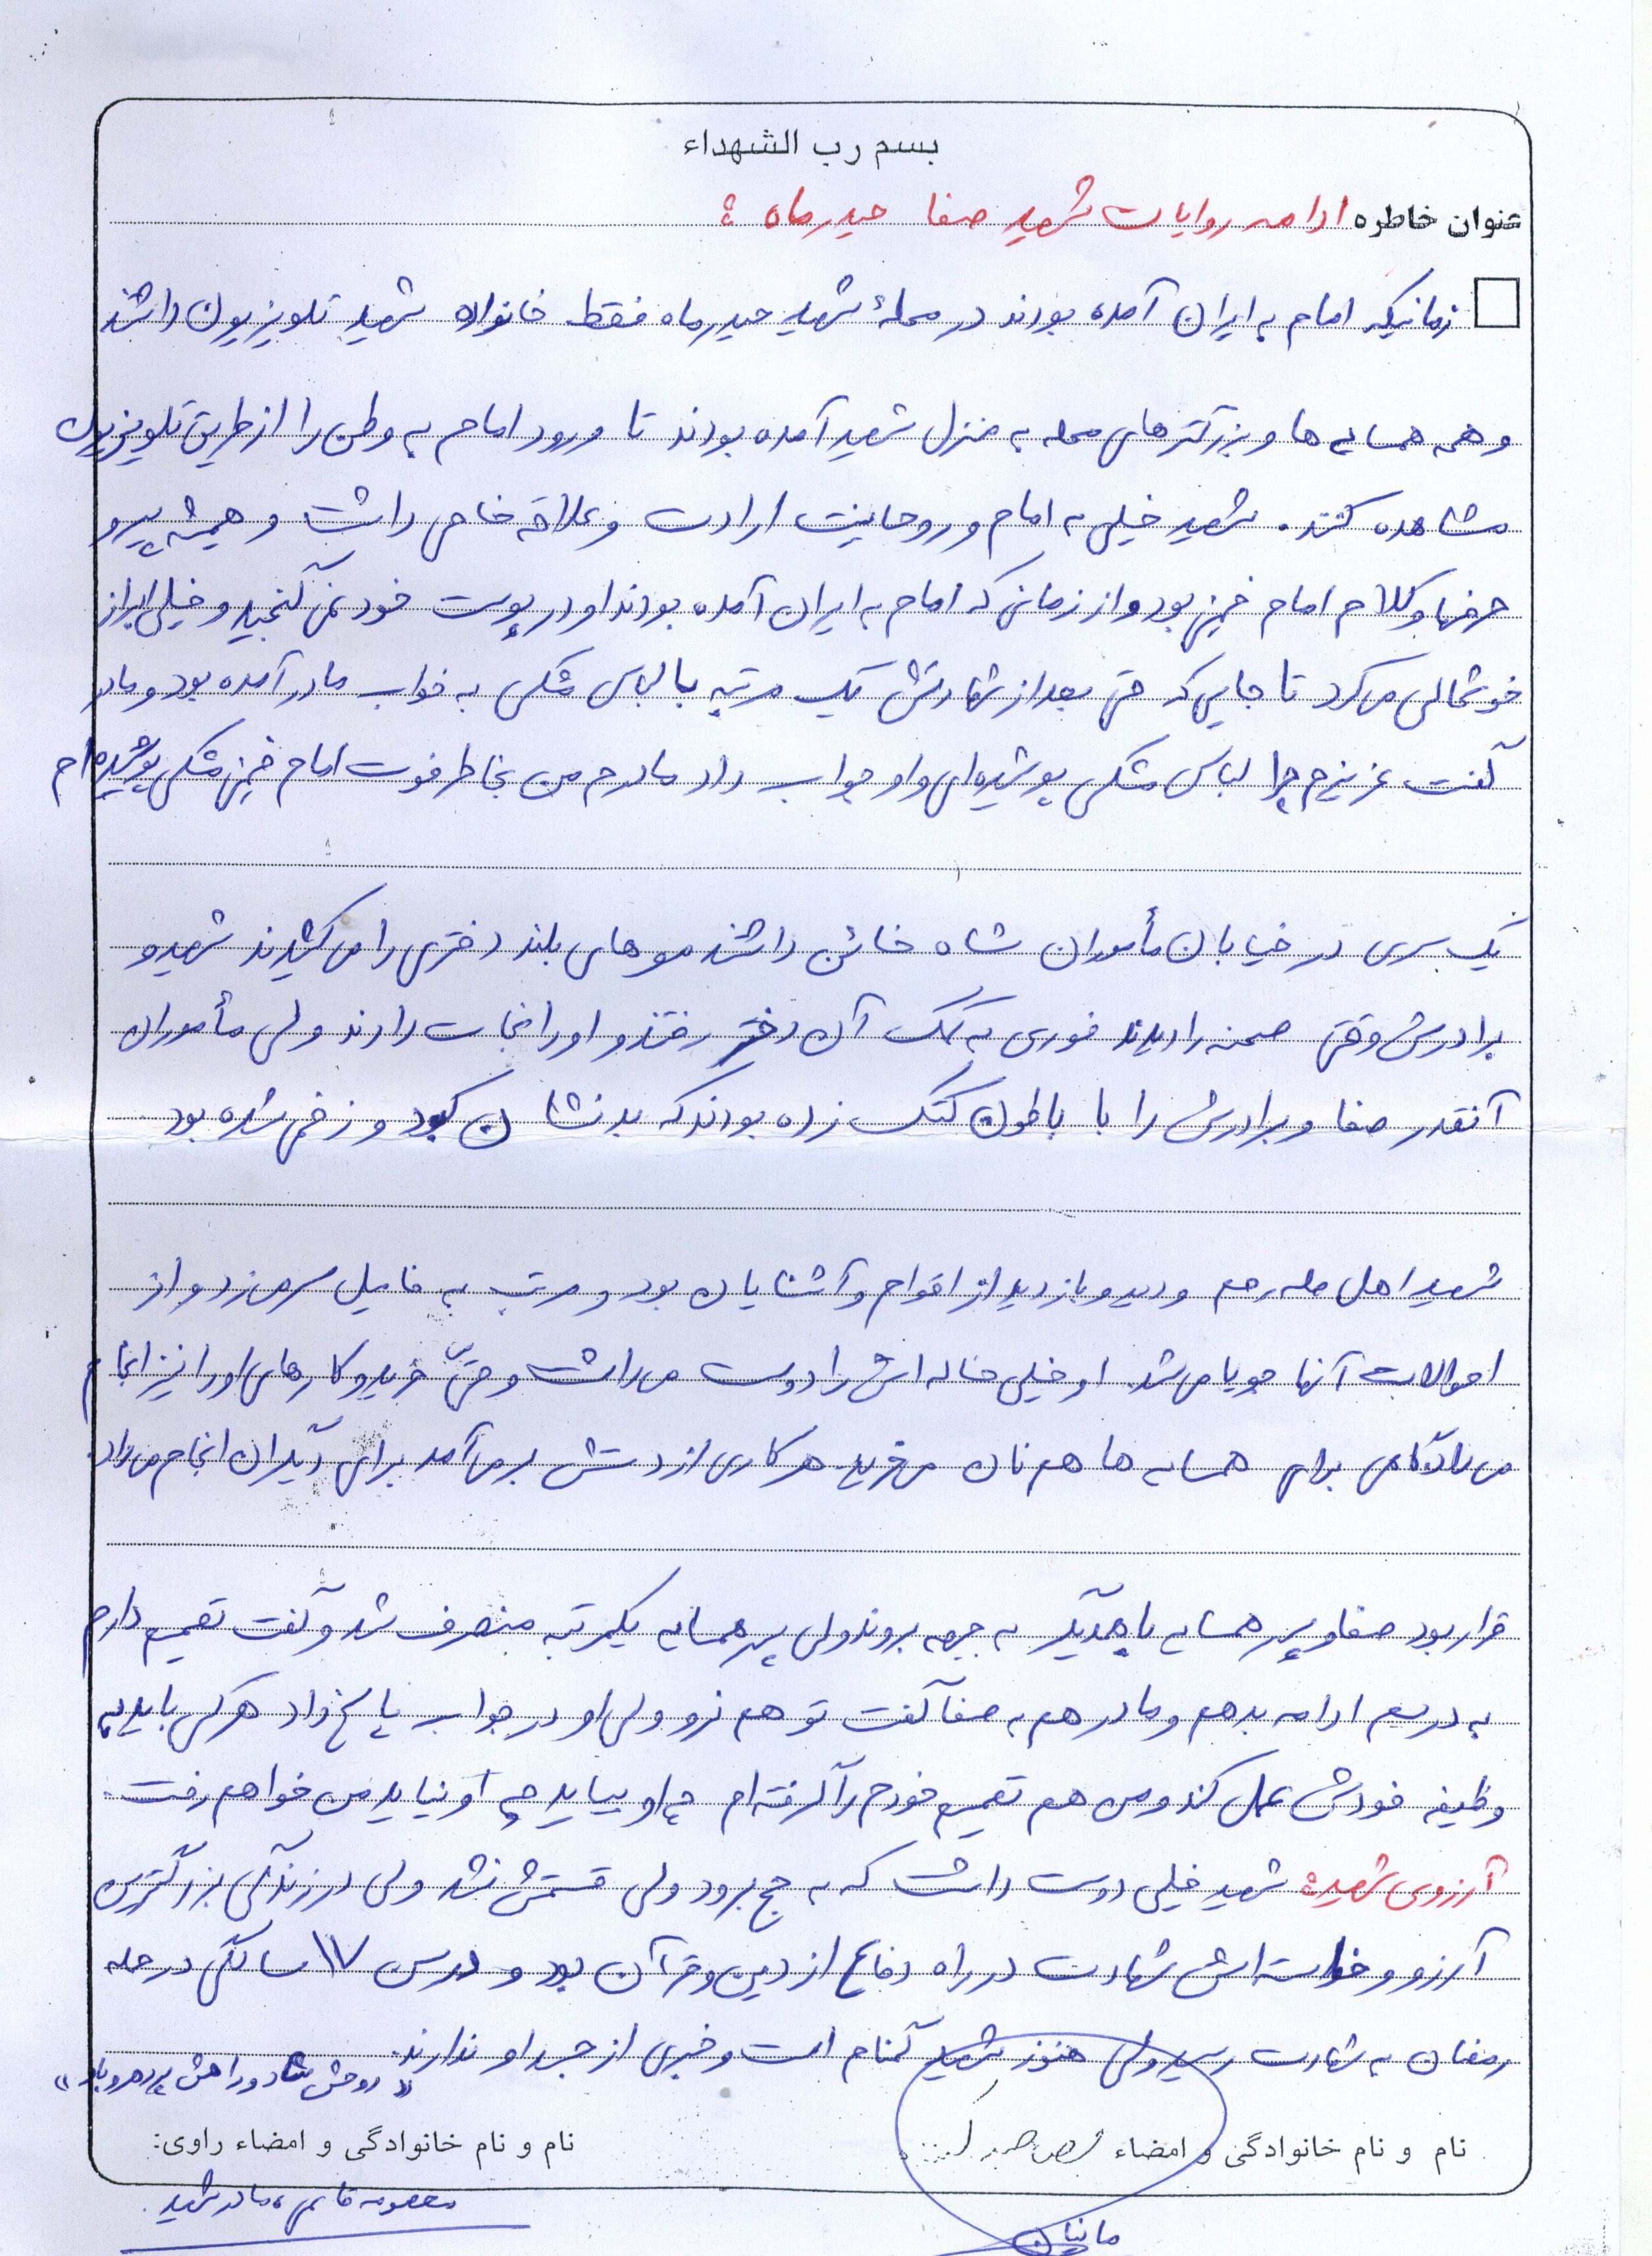 بسم رب الشهداء
عنوان خاطره ادامه روایات شهید صفا حیدرماه :
زمانیکه امام به ایران آمده بودند در محلهٔ شهید حیدرماه فقط خانواده شهید تلویزیون داشتند
و همه همسایه ها و بزرگترهای محله به منزل شهید آمده بودند تا ورود امام به وطن را از طریق تلویزیون
مشاهده کنند. شهید خیلی به امام و روحانیت ارادت و علاقه خاصی داشت و همیشه پیرو
حرفها و کلام امام خمینی بود و از زمانی که امام به ایران آمده بودند او در پوست خود نمی گنجید و خیلی ابراز
خوشحالی می کرد تا جایی که حتی بعد از شهادتش یک مرتبه با لباس مشکی به خواب مادر آمده بود و مادر
گفت عزیزم چرا لباس مشکی پوشیده ای و او جواب داد مادرم من بخاطر فوت امام خمینی مشکی پوشیده ام
یک سری در خیابان مأموران شاه خائن داشتند موهای بلند دختری را می کشیدند شهید و
برادرش وقتی صحنه را دیدند فوری به کمک آن دختر رفتند و او را نجات دادند ولی مأموران
آنقدر صفا و برادرش را با باطون کتک زده بودند که بدنشان کبود و زخمی شده بود
شهید اهل صله رحم و دید و بازدید از اقوام و آشنایان بود و مرتب به فامیل سر می زد و از
احوالات آنها جویا می شد. او خیلی خاله اش را دوست می داشت و حتّی خرید و کارهای او را نیز انجام
می داد گاهی برای همسایه ها هم نان می خرید هر کاری از دستش بر می آمد برای دیگران انجام می داد.
قرار بود صفا و پسر همسایه با همدیگر به جبهه بروند ولی پسر همسایه یکمرتبه منصرف شد و گفت تصمیم دارم
به درسم ادامه بدهم و مادر هم به صفا گفت تو هم نرو ولی او در جواب پاسخ داد هر کس باید به
وظیفه خودش عمل کند و من هم تصمیم خودم را گرفته ام چه او بیاید چه او نیاید من خواهم رفت.
آرزوی شهید: شهید خیلی دوست داشت که به حج برود ولی قسمتش نشد ولی در زندگی بزرگترین
آرزو و خواسته اش شهادت در راه دفاع از دین و قرآن بود و در سن ۱۷ سالگی در حمله
رمضان به شهادت رسید ولی هنوز شهید گمنام است و خبری از جسد او ندارند.
« روحش شاد و راهش پر رهرو باد »
نام و نام خانوادگی و امضاء
نام و نام خانوادگی و امضاء راوی:
معصومه قاسمی، مادر شهید